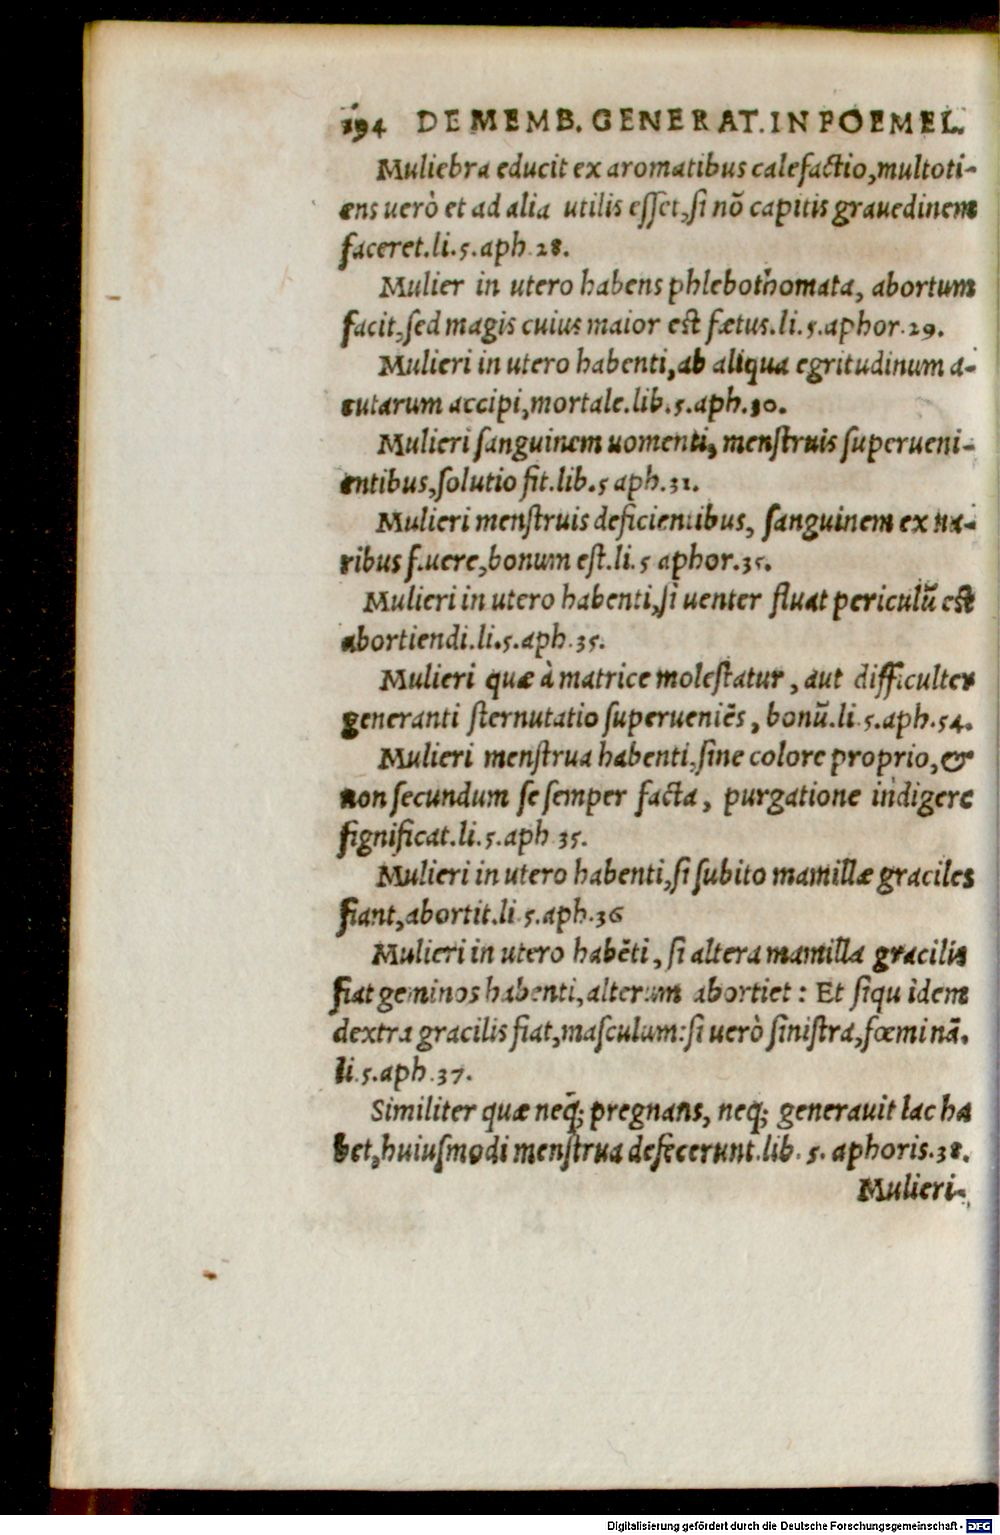 194 DE MEMB. GENERAT. IN FOEMEL.
Muliebra educit ex aromatibus calefactio, multoti-
ens uerò et ad alia utilis esset, si nõ capitis grauedinem
faceret. li. 5. aph. 28.
Mulier in utero habens phlebothomata, abortum
facit, sed magis cuius maior est fætus. li. 5. aphor. 29.
Mulieri in utero habenti, ab aliqua egritudinum a-
cutarum accipi, mortale. lib. 5. aph. 30.
Mulieri sanguinem uomenti, menstruis superueni-
entibus, solutio fit. lib. 5 aph. 31.
Mulieri menstruis deficientibus, sanguinem ex na-
ribus f.uere, bonum est. li. 5 aphor. 35.
Mulieri in utero habenti, si uenter fluat periculũ est
abortiendi. li. 5. aph. 35.
Mulieri quæ à matrice molestatur, aut difficulter
generanti sternutatio superueniẽs, bonũ. li. 5. aph. 54.
Mulieri menstrua habenti, sine colore proprio, &
non secundum se semper facta, purgatione indigere
significat. li. 5. aph 35.
Mulieri in utero habenti, si subito mamillæ graciles
fiant, abortit. li. 5. aph. 36
Mulieri in utero habẽti, si altera mamilla gracilis
fiat geminos habenti, alterum abortiet: Et siqu idem
dextra gracilis fiat, masculum: si uerò sinistra, fœminã.
li. 5. aph. 37.
Similiter quæ neq̃; pregnans, neq; generauit lac ha
bet, huiusmodi menstrua defecerunt. lib. 5. aphoris. 38.
Mulieri-
Digitalisierung gefördert durch die Deutsche Forschungsgemeinschaft - DFG